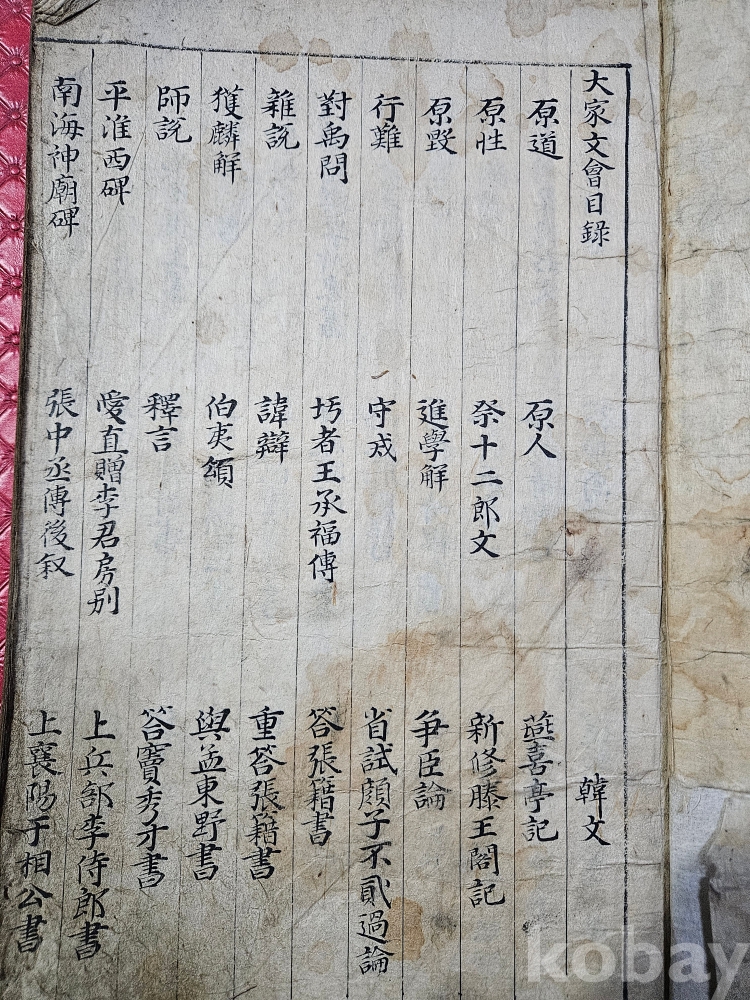 大家文會目錄 韓文
原道 原人 燕喜亭記
原性 祭十二郎文 新修滕王閣記
原毀 進學解 爭臣論
行難 守戒 省試顔子不貳過論
對禹問 圬者王承福傳 答張籍書
雜說 諱辯 重答張籍書
獲麟解 伯夷頌 與孟東野書
師說 釋言 答竇秀才書
平淮西碑 愛直贈李君房别 上兵部李侍郎書
南海神廟碑 張中丞傳後叙 上襄陽于相公書
kobay